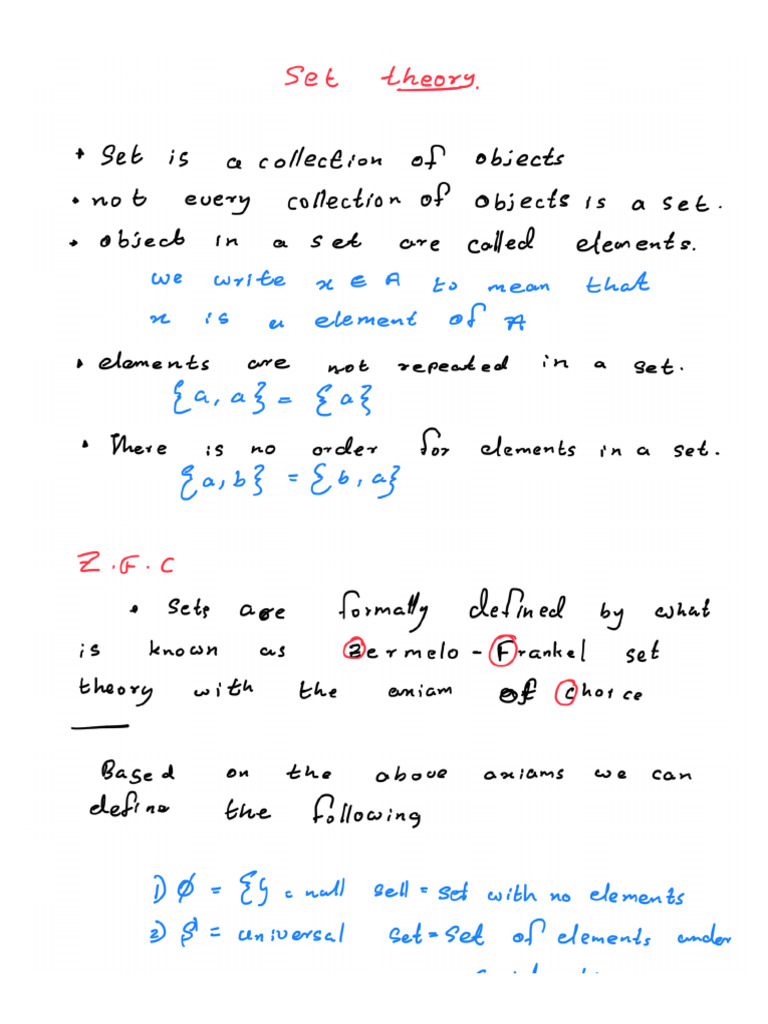 Set theory.
• Set is a collection of objects
• not every collection of objects is a set.
• object in a set are called elements.
we write x ∈ A to mean that
x is a element of A
• elements are not repeated in a set.
{a, a} = {a}
• There is no order for elements in a set.
{a, b} = {b, a}
Z.F.C
• Sets are formally defined by what
is known as Zermelo - Frankel set
theory with the axiam of choice
Based on the above axiams we can
define the following
1) ∅ = {} = null sell = set with no elements
2) S = universal set = set of elements under